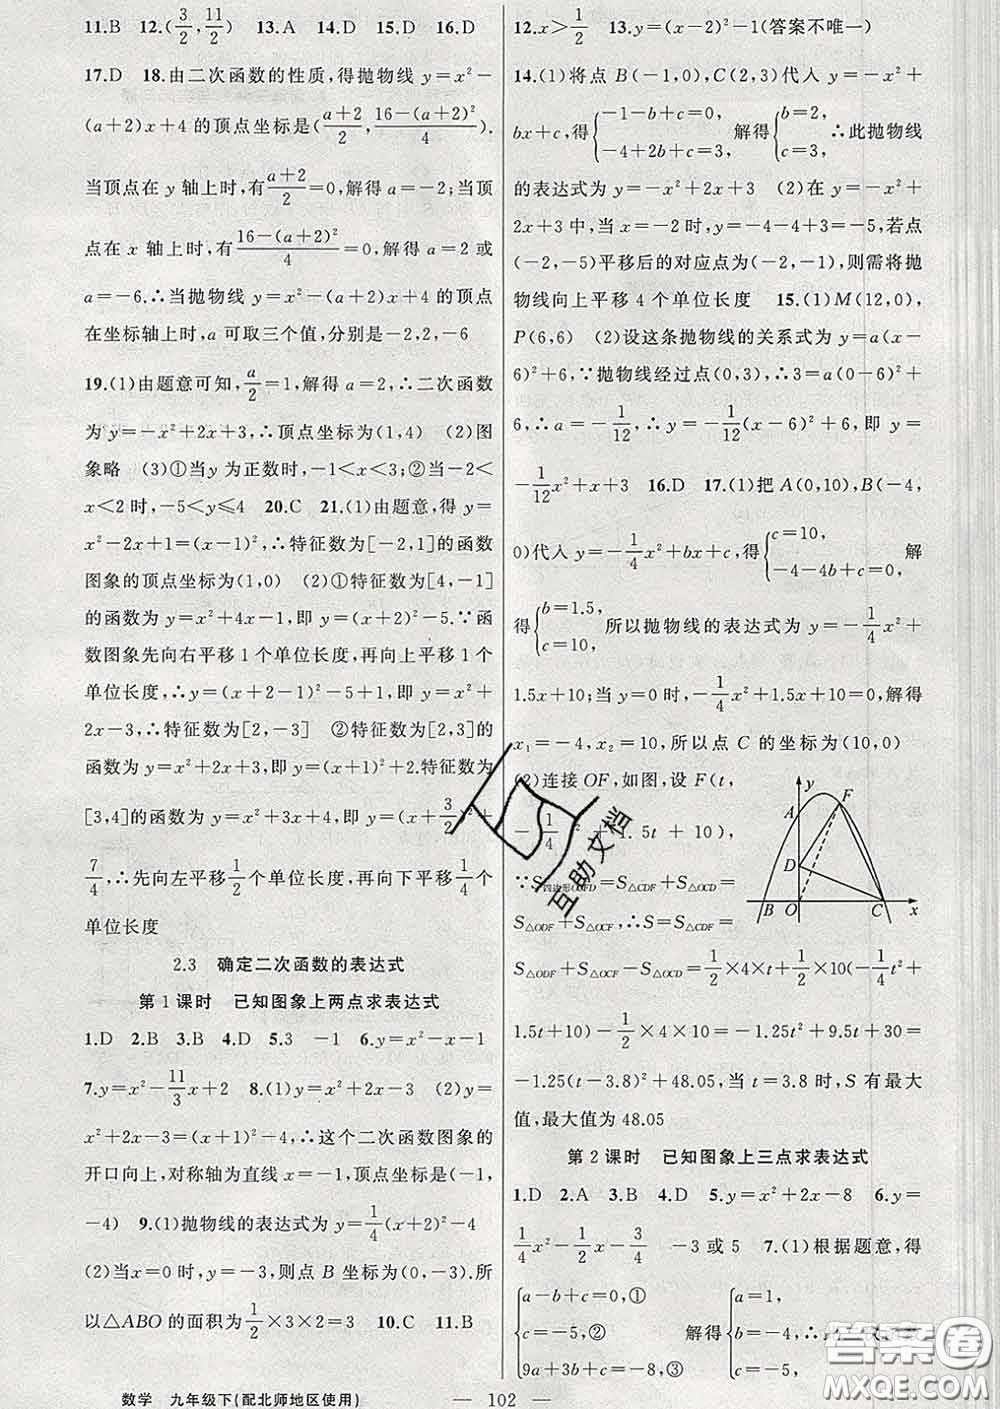 11.B 12.(3/2,11/2) 13.A 14.D 15.D 16.D
17.D 18.由二次函数的性质,得抛物线 y=x²-
(a+2)x+4 的顶点坐标是((a+2)/2,(16-(a+2)²)/4).
当顶点在 y 轴上时,有(a+2)/2=0,解得 a=-2;当顶
点在 x 轴上时,有(16-(a+2)²)/4=0,解得 a=2 或
a=-6.∴当抛物线 y=x²-(a+2)x+4 的顶点
在坐标轴上时,a 可取三个值,分别是-2,2,-6
19.(1)由题意可知,a/2=1,解得 a=2,∴二次函数
为 y=-x²+2x+3,∴顶点坐标为(1,4) (2)图
象略 (3)①当y 为正数时,-1<x<3;②当-2<
x<2 时,-5<y≤4 20.C 21.(1)由题意,得 y=
x²-2x+1=(x-1)²,∴特征数为[-2,1]的函数
图象的顶点坐标为(1,0) (2)①特征数为[4,-1]
的函数为 y=x²+4x-1,即 y=(x+2)²-5.∵函
数图象先向右平移 1 个单位长度,再向上平移 1 个
单位长度,∴y=(x+2-1)²-5+1,即 y=x²+
2x-3,∴特征数为[2,-3] ②特征数为[2,3]的
函数为 y=x²+2x+3,即 y=(x+1)²+2.特征数为
[3,4]的函数为 y=x²+3x+4,即 y=(x+3/2)²+
7/4,∴先向左平移1/2个单位长度,再向下平移1/4个
单位长度
2.3 确定二次函数的表达式
第 1 课时 已知图象上两点求表达式
1.D 2.B 3.B 4.D 5.3 -1 6.y=x²-x-1
7.y=x²-11/3x+2 8.(1)y=x²+2x-3 (2)y=
x²+2x-3=(x+1)²-4,∴这个二次函数图象的
开口向上,对称轴为直线 x=-1,顶点坐标为(-1,
-4) 9.(1)抛物线的表达式为 y=1/4(x+2)²-4
(2)当 x=0 时,y=-3,则点 B 坐标为(0,-3).所
以△ABO 的面积为1/2×3×2=3 10.C 11.B
数学 九年级下(配北师地区使用)
— 102 —
12.x>1/2 13.y=(x-2)²-1(答案不唯一)
14.(1)将点 B(-1,0),C(2,3)代入 y=-x²+
bx+c,得{-1-b+c=0, -4+2b+c=3, 解得{b=2, c=3, ∴此抛物线
的表达式为 y=-x²+2x+3 (2)在 y=-x²+
2x+3 中,当 x=-2 时,y=-4-4+3=-5,若点
(-2,-5)平移后的对应点为(-2,-1),则需将抛
物线向上平移 4 个单位长度 15.(1)M(12,0),
P(6,6) (2)设这条抛物线的关系式为 y=a(x-
6)²+6,∵抛物线经过点(0,3),∴3=a(0-6)²+
6,∴a=-1/12,∴y=-1/12(x-6)²+6,即 y=
-1/12x²+x+3 16.D 17.(1)把 A(0,10),B(-4,
0)代入 y=-1/4x²+bx+c,得{c=10, -4-4b+c=0, 解
得{b=1.5, c=10, 所以抛物线的表达式为 y=-1/4x²+
1.5x+10;当 y=0 时,-1/4x²+1.5x+10=0,解得
x₁=-4,x₂=10,所以点 C 的坐标为(10,0)
(2)连接 OF,如图,设 F(t,
-1/4t²+1.5t+10),
∵S四边形OCFD=S△CDF+S△OCD=
S△ODF+S△OCF,∴S=S△CDF=
S△ODF+S△OCF-S△OCD=1/2×4×t+1/2×10×(-1/4t²+
1.5t+10)-1/2×4×10=-1.25t²+9.5t+30=
-1.25(t-3.8)²+48.05,当 t=3.8 时,S 有最大
值,最大值为 48.05
y A F D B O C x
第 2 课时 已知图象上三点求表达式
1.D 2.A 3.B 4.D 5.y=x²+2x-8 6.y=
1/4x²-1/2x-3/4 -3 或 5 7.(1)根据题意,得
{a-b+c=0,① c=-5,② 9a+3b+c=-8,③ 解得{a=1, b=-4, c=-5,
互助文档
答案圈
MXQE.COM